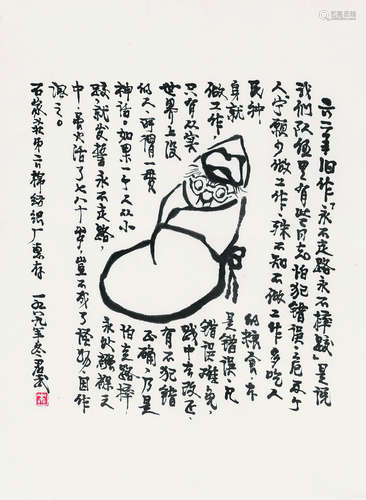 六二年旧作「永不走路永不摔跤」是说
我们队伍里有些同志怕犯错误、危及个
人、宁愿少做工作、殊不知不做工作多吃人
民种
的粮食、本
身就
是错误、凡
做工作、
错误难免、
只有从实
践中去改正、
世界上没
有不犯错
的人、所谓一贯
正确、乃是
神话。如果一个人从小
怕走路摔
跤、就发誓永不走路、
永处襁褓之
中、虽活了七八十岁、岂不成了怪物、因作
讽之。
石家庄市六棉纺织厂惠存 一九八九年冬君武